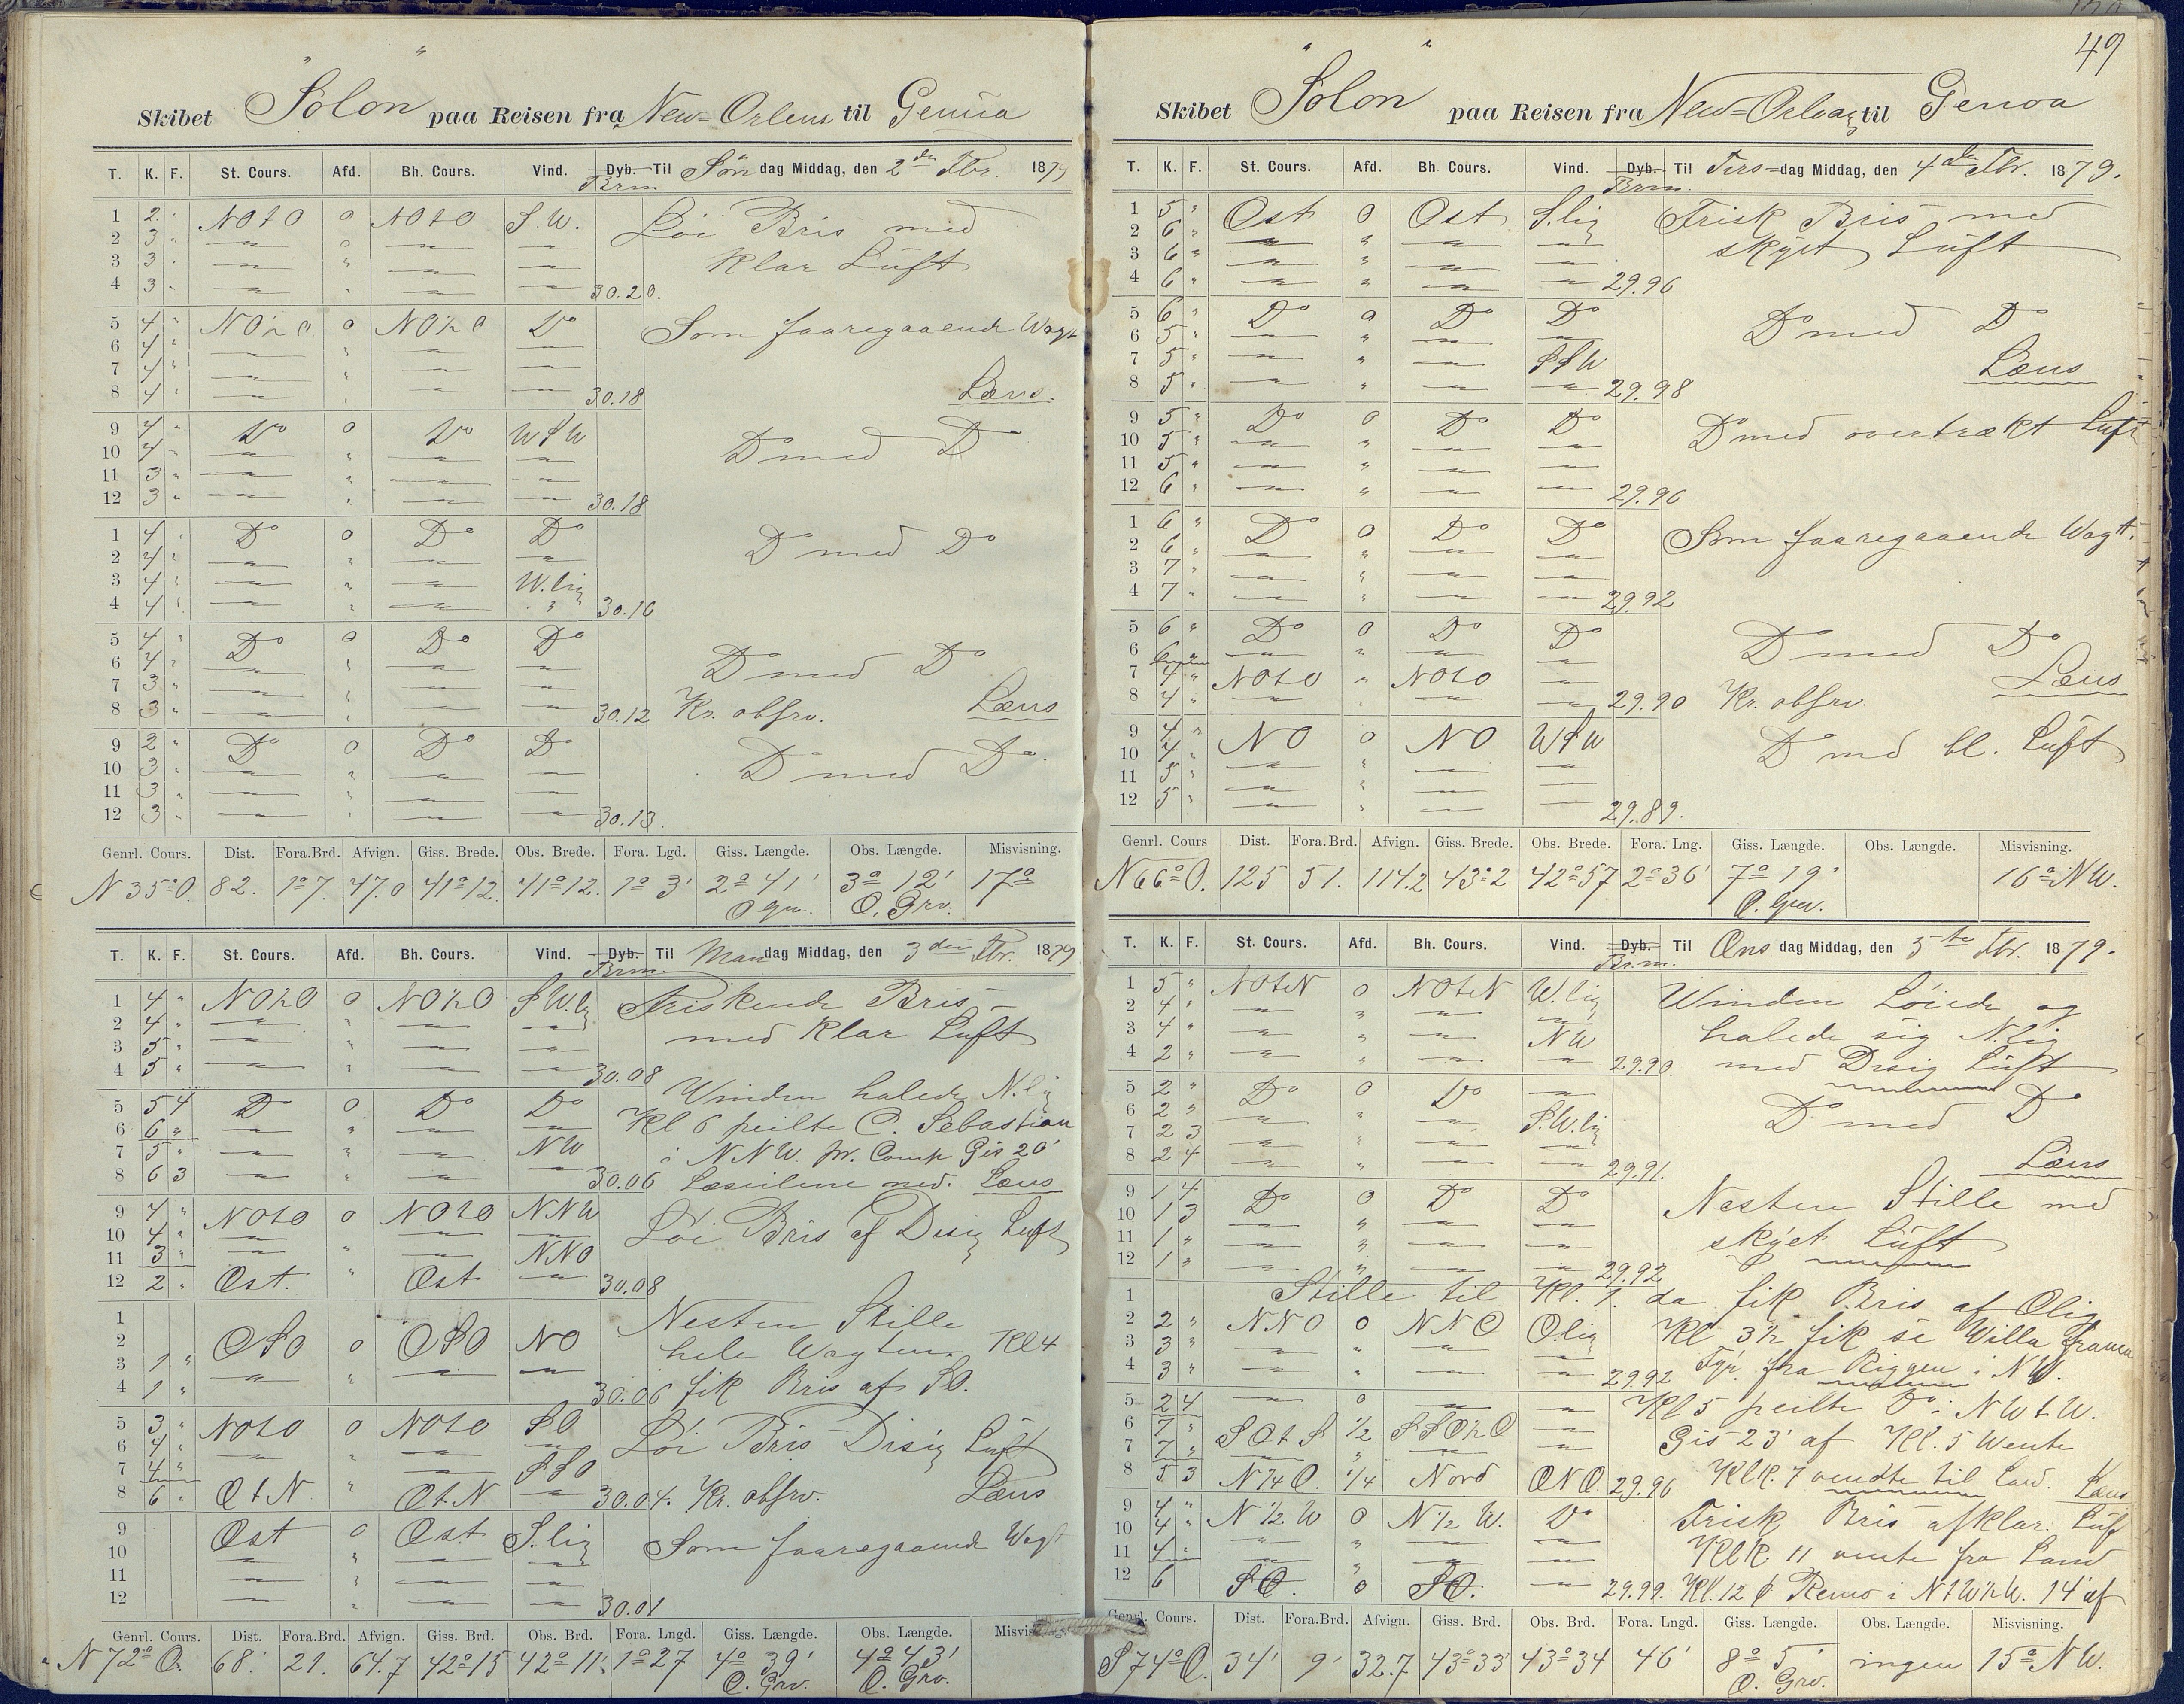 49
Skibet "Solon" paa Reisen fra New=Orlens til Genúa
T. K. F. St. Cours. Afd. Bh. Cours. Vind. Dyb. Brm. Til Søn dag Middag, den 2den Fbr. 1879
1 2 " NOtO 0 NOtO S.W. Löi Bris med
2 3 " — " — — Klar Lúft
3 3 " — " — —
4 3 " — " — — 30.20.
5 4 " NO½O 0 NO½O Do Som faaregaaende Wagt
6 4 " — " — —
7 4 " — " — —
8 4 " — " — — 30.18 Læns.
9 4 " Do 0 Do WSW Do med Do
10 4 " — " — —
11 3 " — " — —
12 3 " — " — — 30.18
1 4 " Do 0 Do Do Do med Do
2 4 " — " — —
3 4 " — " — W.lig
4 4 " — " — " 30.16
5 4 " Do 0 Do Do Do med Do
6 4 " — " — —
7 3 " — " — —
8 3 " — " — — 30.12 Kr. obsrv. Læns
9 2 " Do 0 Do Do Do med Do
10 3 " — " — —
11 3 " — " — —
12 3 " — " — — 30.13.
Genrl. Cours. Dist. Fora.Brd. Afvign. Giss. Brede. Obs. Brede. Fora. Lgd. Giss. Længde. Obs. Længde. Misvisning.
N 35o O. 82. 1o 7. 47.0 41o 12. 41o 12. 1o 3' 2o 41' 3o 12' 17o
O. Grv.
T. K. F. St. Cours. Afd. Bh. Cours. Vind. Dyb. Brm. Til Man dag Middag, den 3die Fbr. 1879
1 4 " NO½O 0 NO½O SW.lig Friskende Bris
2 4 " — " — — med Klar Luft
3 5 " — " — —
4 5 " — " — — 30.08
Winden halede N.lig
5 5 4 Do 0 Do Do Kl 6 peilte C. Sebastian
6 6 " — " — —
7 5 " — " — NW i NNW. pr. Comp Gis 20'
8 6 3 — " — — 30.06 Læseilene ned. Læns
9 4 " NOtO 0 NOtO NNW Löi Bris af Disig Luft
10 4 " — " — —
11 3 " — " — NNO
12 2 " Ost. " Ost — 30.08
1 Nesten Stille
2 OSO 0 OSO NO hele Wagten Kl 4
3 1 " — " — —
4 1 " 30.06 fik Bris af SO.
5 3 " NOtO 0 NOtO SO Löi Bris Disig Luft
6 4 " — " — —
7 4 " — SSO
8 6 " OtN " OtN — 30.04. Kr. obsrv. Læns
9 Ost 0 Ost. S.lig Som faaregaaende Wagt
10 — " — —
11 — " — —
12 — " — — 30.01
Genrl. Cours. Dist. Fora.Brd. Afvign. Giss. Brd. Obs. Brd. Fora. Lngd. Giss. Længde. Obs. Længde.
N 72o O. 68. 21. 64.7 42o 15 42o 11'. 1o 27 4o 39' 4o 43'
O. Grv. O. Grv.
Skibet "Solon" paa Reisen fra til Genoa
T. K. F. St. Cours. Afd. Bh. Cours. Vind. Dyb. Brm. Til Tirs=dag Middag, den 4de Fbr. 1879.
1 5 " Ost 0 Ost S.lig Frisk Bris med
2 6 " — " — — skyet Lúft
3 6 " — " — —
4 6 " — " — — 29.96
5 6 " Do 0 Do Do Do med Do
6 5 " — " — —
7 5 " — " — SSW Læns
8 5 " — " — — 29.98
9 5 " Do 0 Do Do Do med overtrækt Luft
10 5 " — " — —
11 5 " — " — —
12 6 " — " — — 29.96
1 6 " Do 0 Do Do Som faaregaaende Wagt.
2 6 " — " — —
3 7 " — " — —
4 7 " — " — — 29.92
5 6 " Do 0 Do Do Do med Do
6 6 " — " — —
7 4 " NOtO " NOtO — Læns
8 4 " — " — — 29.90 Kr. obsrv.
9 4 " NO 0 NO WSW Do med bl. Luft
10 4 " — " — —
11 5 " — " — —
12 5 " — " — — 29.89.
Genrl. Cours Dist. Fora.Brd. Afvign. Giss. Brede. Obs. Brede. Fora. Lng. Giss. Længde. Obs. Længde. Misvisning.
N 66o O. 125 51. 114.2 43o 2 42o 57 2o 36' 7o 19' 16o NW.
O. Grv.
T. K. F. St. Cours. Afd. Bh. Cours. Vind. Dyb. Brm. Til Ons dag Middag, den 5te Fbr. 1879.
1 5 " NOtN 0 NOtN W.lig Winden Löiede og
2 4 " — " — —
3 4 " — " — NW halede sig N.lig
4 2 " — " — — 29.90. med Disig Lúft
5 2 " Do 0 Do — Do med Do
6 2 " — " — S.W.lig
7 2 3 — " — —
8 2 4 — " — — 29.91. Læns
9 1 4 Do 0 Do Do Nesten Stille med
10 1 3 — " — —
11 1 " — " — — skyet Lúft
12 1 " — " — — 29.92
1 Stille til Kl. 1. da fik Bris af Olig
2 2 " NNO 0 NNO Olig Kl 3½ fik se Willa Franca
3 3 " — " — —
4 3 " — " — — 29.92 Fyr. fra Riggen i NW.
5 2 4 — 0 — — Kl 5 peilte Do i NWtW.
6 7 " SOtS ½ SSO½O — Gis 23' af Kl. 5 Wente
7 7 " — " — —
8 5 3 N¼O. ¼ Nord ONO. 29.96 KlK. 7 vendte til Land. Læns
9 4 " N½W 0 N½W. Do Frisk Bris afklar. Luf
10 4 " — " — —
11 4 " — " — — KlK 11 vente fra Land
12 6 SO. 0 SO. — 29.99. Kl. 12 Remo i NtW½W. 14' af
Genrl. Cours. Dist. Fora.Brd. Afvign. Giss. Brd. Obs. Brd. Fora. Lngd. Giss. Længde. Obs. Længde. Misvisning.
S 74o O. 34' 9' 32.7 43o 33' 43o 34 46' 8o 5' ingen 15o NW.
O. Grv.